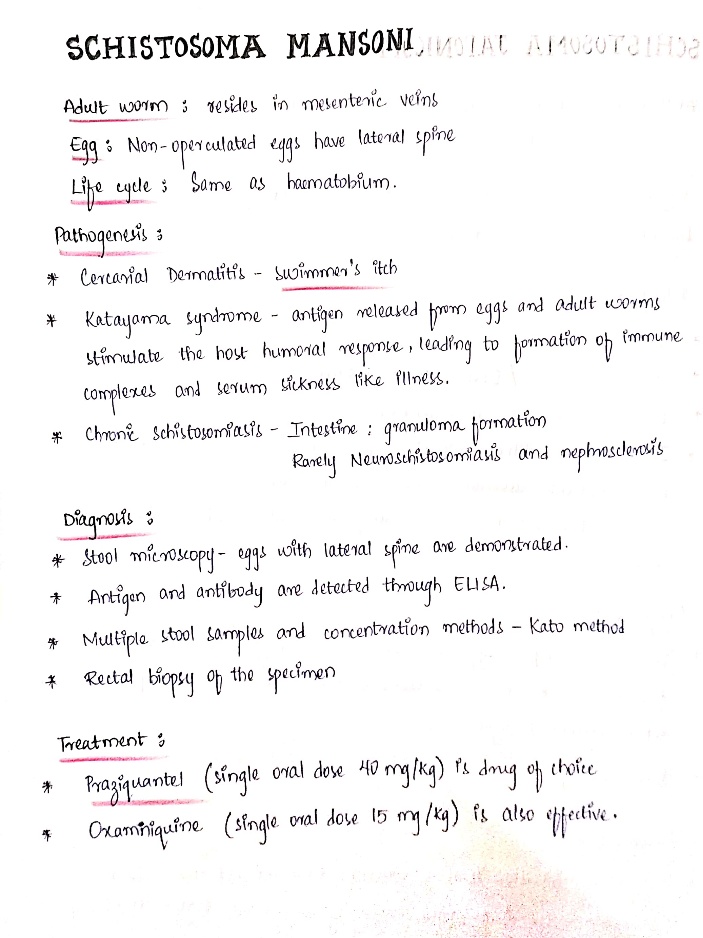 SCHISTOSOMA MANSONI
Adult worm : resides in mesenteric veins
Egg : Non-operculated eggs have lateral spine
Life cycle : Same as haematobium.
Pathogenesis :
* Cercarial Dermatitis - Swimmer's itch
* Katayama syndrome - antigen released from eggs and adult worms
stimulate the host humoral response, leading to formation of immune
complexes and serum sickness like illness.
* Chronic schistosomiasis - Intestine : granuloma formation
Rarely Neuroschistosomiasis and nephrosclerosis
Diagnosis :
* Stool microscopy - eggs with lateral spine are demonstrated.
* Antigen and antibody are detected through ELISA.
* Multiple stool samples and concentration methods - Kato method
* Rectal biopsy of the specimen
Treatment :
* Praziquantel (single oral dose 40 mg/kg) is drug of choice
* Oxaminiquine (single oral dose 15 mg/kg) is also effective.